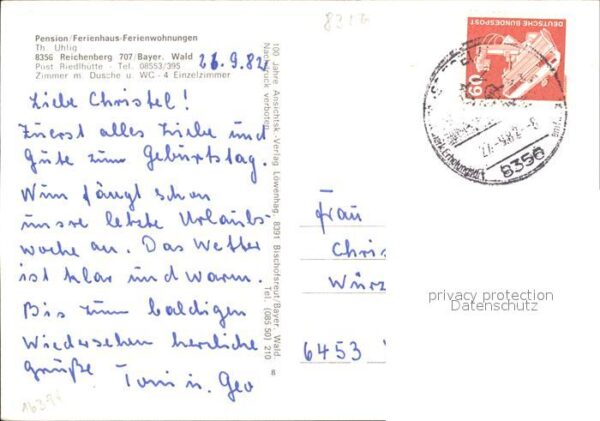 Pension/Ferienhaus-Ferienwohnungen
Th. Uhlig
8356 Reichenberg 707/Bayer. Wald
Post Riedlhütte - Tel. 08553/395
Zimmer m. Dusche u. WC - 4 Einzelzimmer
26.9.82
Liebe Christel!
Zuerst alles Liebe und
Gute zum Geburtstag.
Nun fängt schon
unsre letzte Urlaubs-
woche an. Das Wetter
ist klar und warm.
Bis zum baldigen
Wiedersehen herzliche
Grüße Toni u. Geo
16394
100 Jahre Ansichtsk.-Verlag Löwenhag, 8391 Bischofsreut/Bayer. Wald
Nachdruck verboten Tel. (08550) 210
8
DEUTSCHE BUNDESPOST
60
8356
Frau
Chris
Würz
6453
privacy protection
Datenschutz